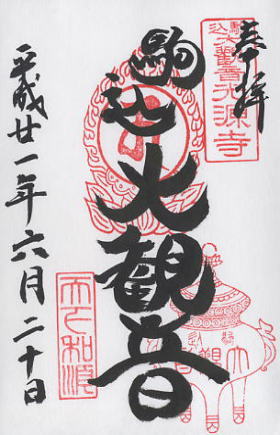 奉拝
駒込大観音光源寺
駒込大観音
天下和順
平成廿一年六月二十日